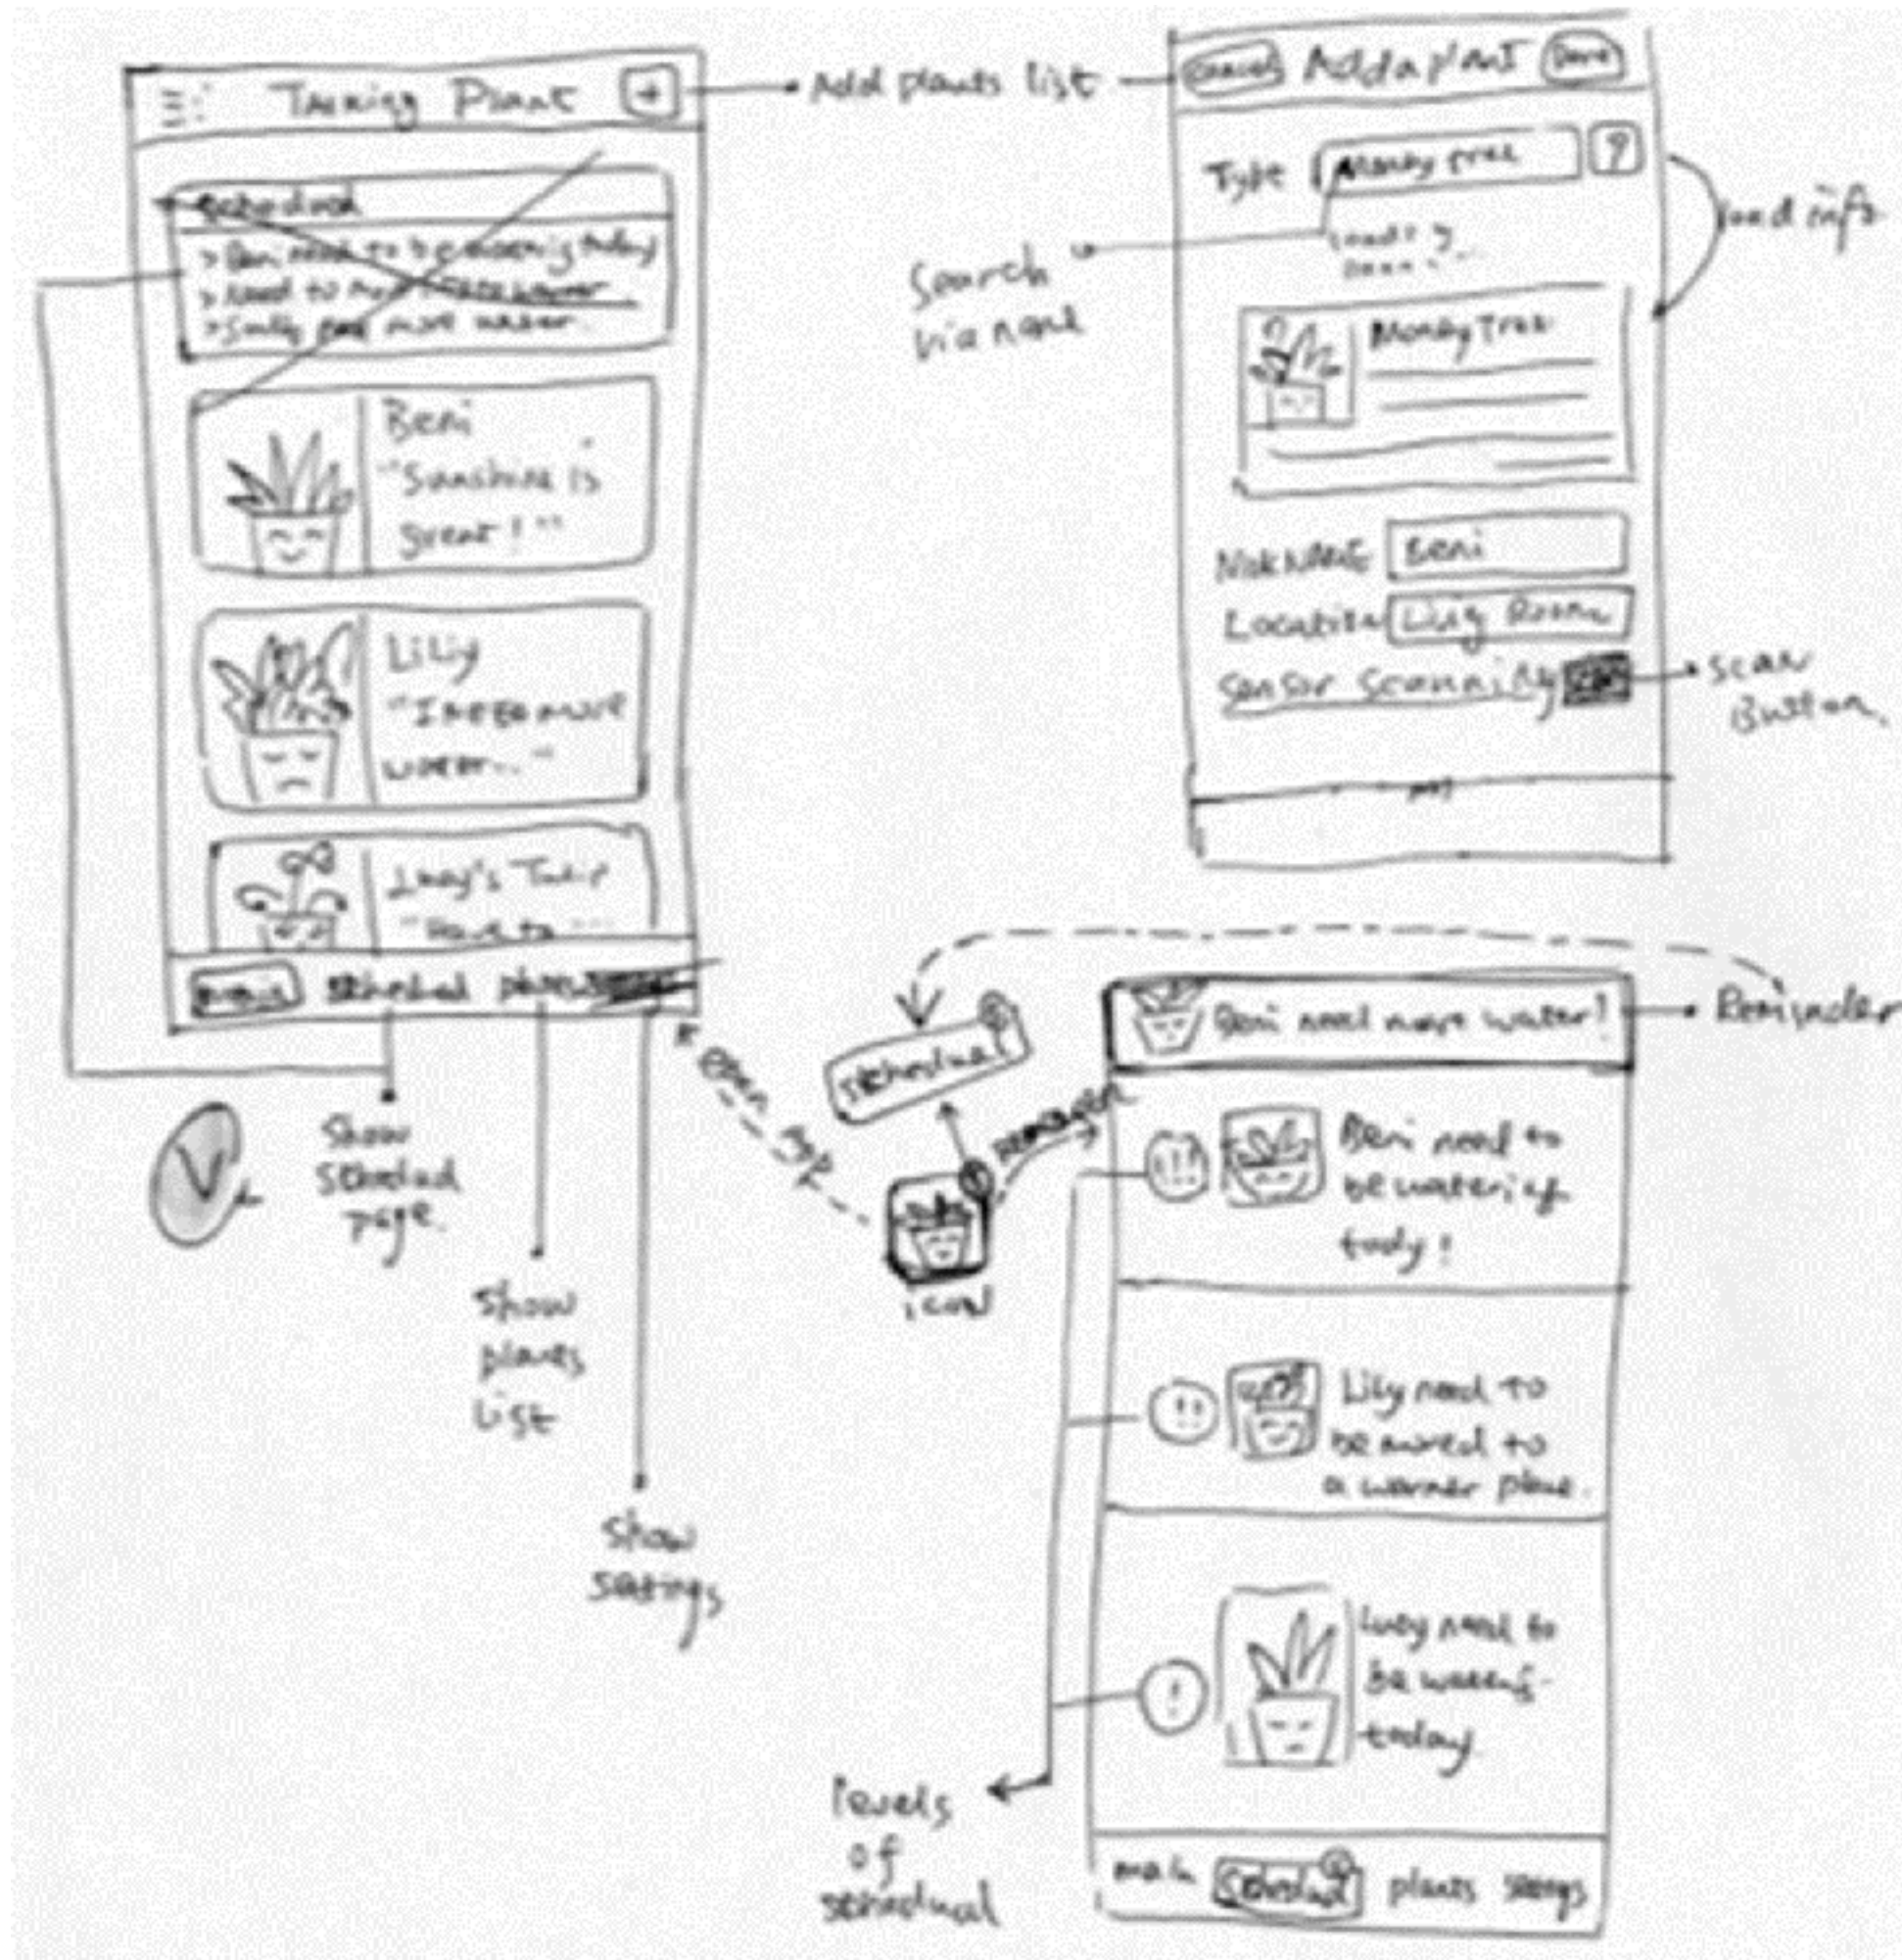 Talking Plant +
Schedual
> Beni need to be watering today
> Need to
> more water.
Beni
"Sunshine is
great!"
LiLiy
"I need more
water..."
Lucy's Tulip
"Have to ...
main schedual plants
Show
schedual
page.
Show
plants
List
Show
settings
V
Add plants list
Cancel Add a plant Done
Type Money tree ?
Loading
load info
Search
via name
Money Tree
NickNAME Beni
Location Living Room
Sensor Scanning
Scan
Button
open app
schedual
icon
Beni need more water!
Reminder
!!! Beni need to
be watering
tody!
!! Lily need to
be moved to
a warmer place.
! Lucy need to
be watering
today
Levels
of
schedual
main schedual plants settings